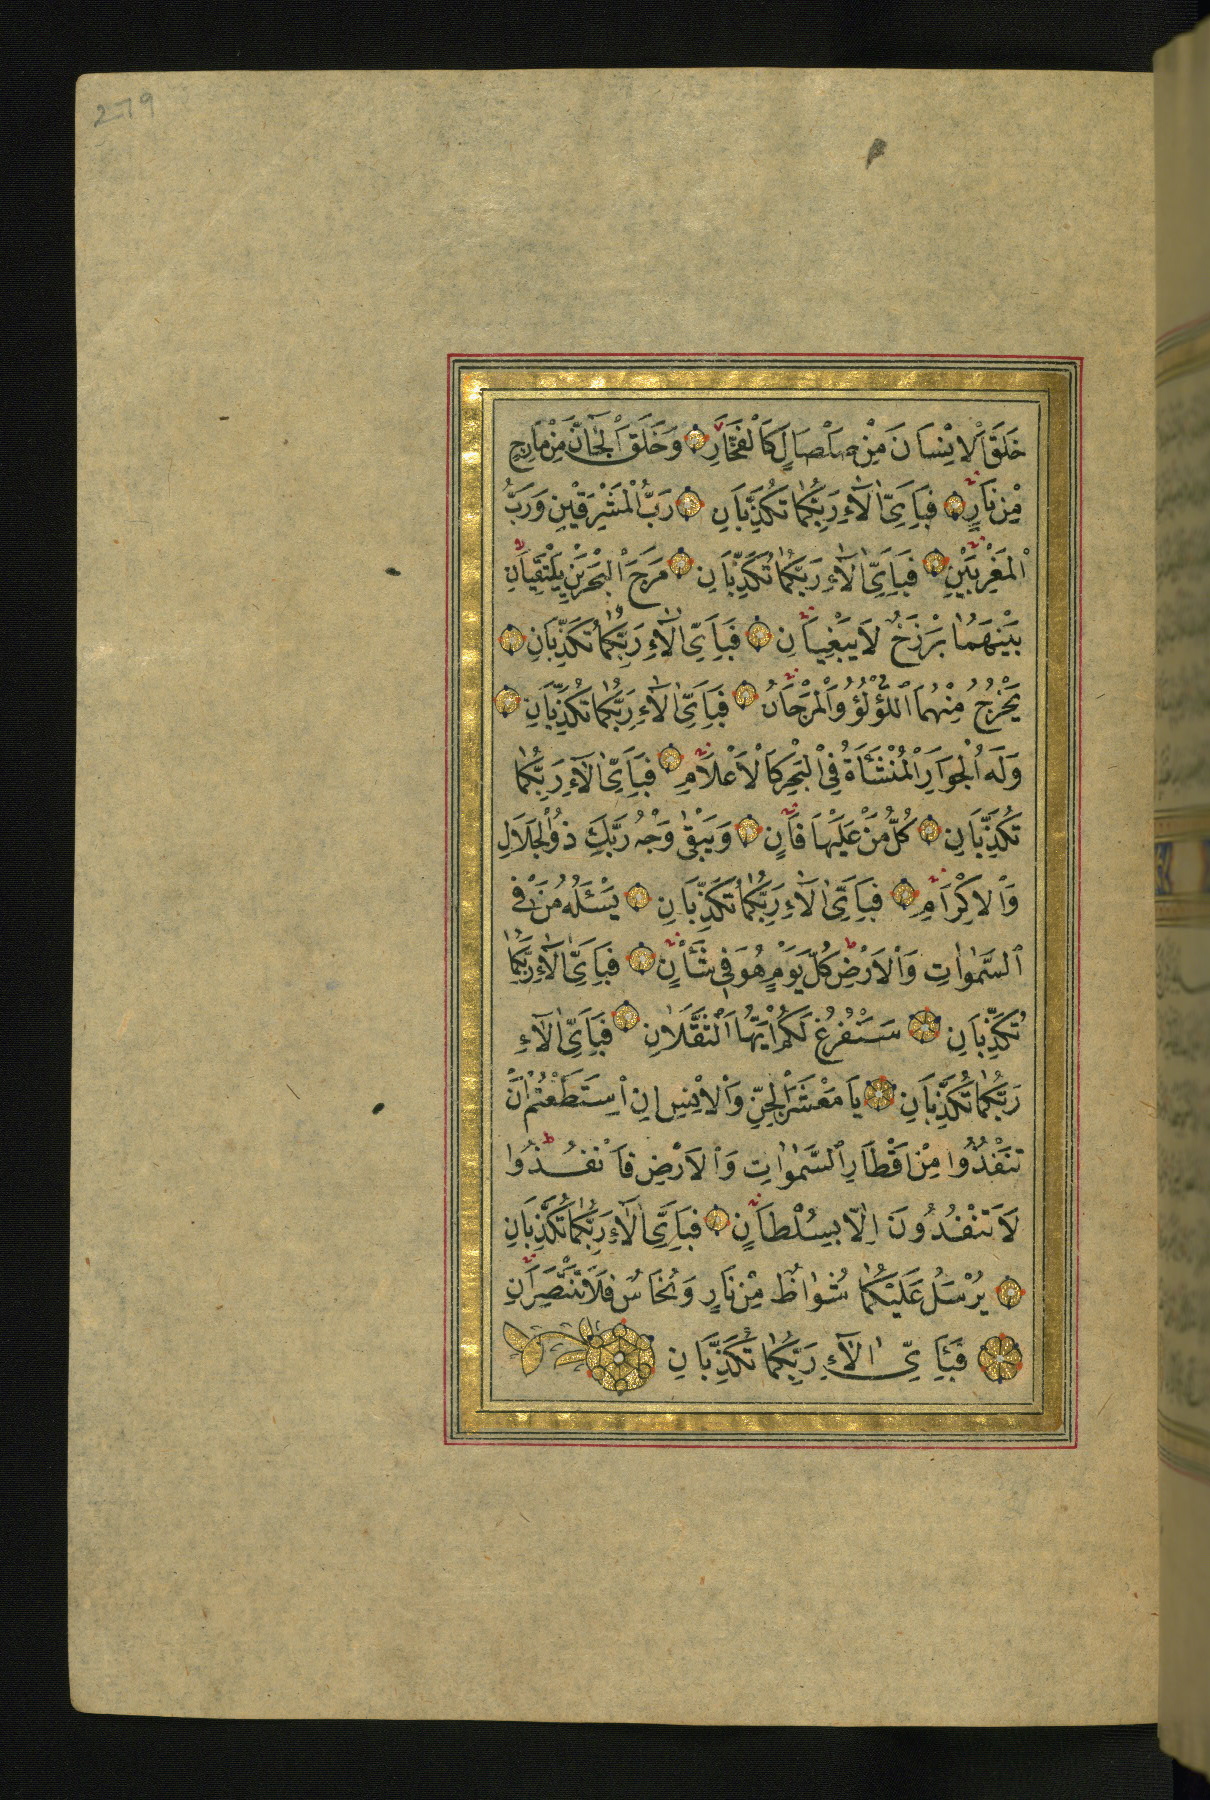 279
خَلَقَ الْاِنْسَانَ مِنْ صَلْصَالٍ كَالْفَخَّارِ وَخَلَقَ الْجَانَّ مِنْ مَارِجٍ
مِنْ نَارٍ فَبِاَيِّ اٰلَاءِ رَبِّكُمَا تُكَذِّبَانِ رَبُّ الْمَشْرِقَيْنِ وَرَبُّ
الْمَغْرِبَيْنِ فَبِاَيِّ اٰلَاءِ رَبِّكُمَا تُكَذِّبَانِ مَرَجَ الْبَحْرَيْنِ يَلْتَقِيَانِ
بَيْنَهُمَا بَرْزَخٌ لَا يَبْغِيَانِ فَبِاَيِّ اٰلَاءِ رَبِّكُمَا تُكَذِّبَانِ
يَخْرُجُ مِنْهُمَا اللُّؤْلُؤُ وَالْمَرْجَانُ فَبِاَيِّ اٰلَاءِ رَبِّكُمَا تُكَذِّبَانِ
وَلَهُ الْجَوَارِ الْمُنْشَأَةُ فِي الْبَحْرِ كَالْاَعْلَامِ فَبِاَيِّ اٰلَاءِ رَبِّكُمَا
تُكَذِّبَانِ كُلُّ مَنْ عَلَيْهَا فَانٍ وَيَبْقٰى وَجْهُ رَبِّكَ ذُو الْجَلَالِ
وَالْاِكْرَامِ فَبِاَيِّ اٰلَاءِ رَبِّكُمَا تُكَذِّبَانِ يَسْـَٔلُهُ مَنْ فِي
السَّمٰوَاتِ وَالْاَرْضِ كُلَّ يَوْمٍ هُوَ فِي شَأْنٍ فَبِاَيِّ اٰلَاءِ رَبِّكُمَا
تُكَذِّبَانِ سَنَفْرُغُ لَكُمْ اَيُّهَ الثَّقَلَانِ فَبِاَيِّ اٰلَاءِ
رَبِّكُمَا تُكَذِّبَانِ يَا مَعْشَرَ الْجِنِّ وَالْاِنْسِ اِنِ اسْتَطَعْتُمْ اَنْ
تَنْفُذُوا مِنْ اَقْطَارِ السَّمٰوَاتِ وَالْاَرْضِ فَانْفُذُوا
لَا تَنْفُذُونَ اِلَّا بِسُلْطَانٍ فَبِاَيِّ اٰلَاءِ رَبِّكُمَا تُكَذِّبَانِ
يُرْسَلُ عَلَيْكُمَا شُوَاظٌ مِنْ نَارٍ وَنُحَاسٌ فَلَا تَنْتَصِرَانِ
فَبِاَيِّ اٰلَاءِ رَبِّكُمَا تُكَذِّبَانِ